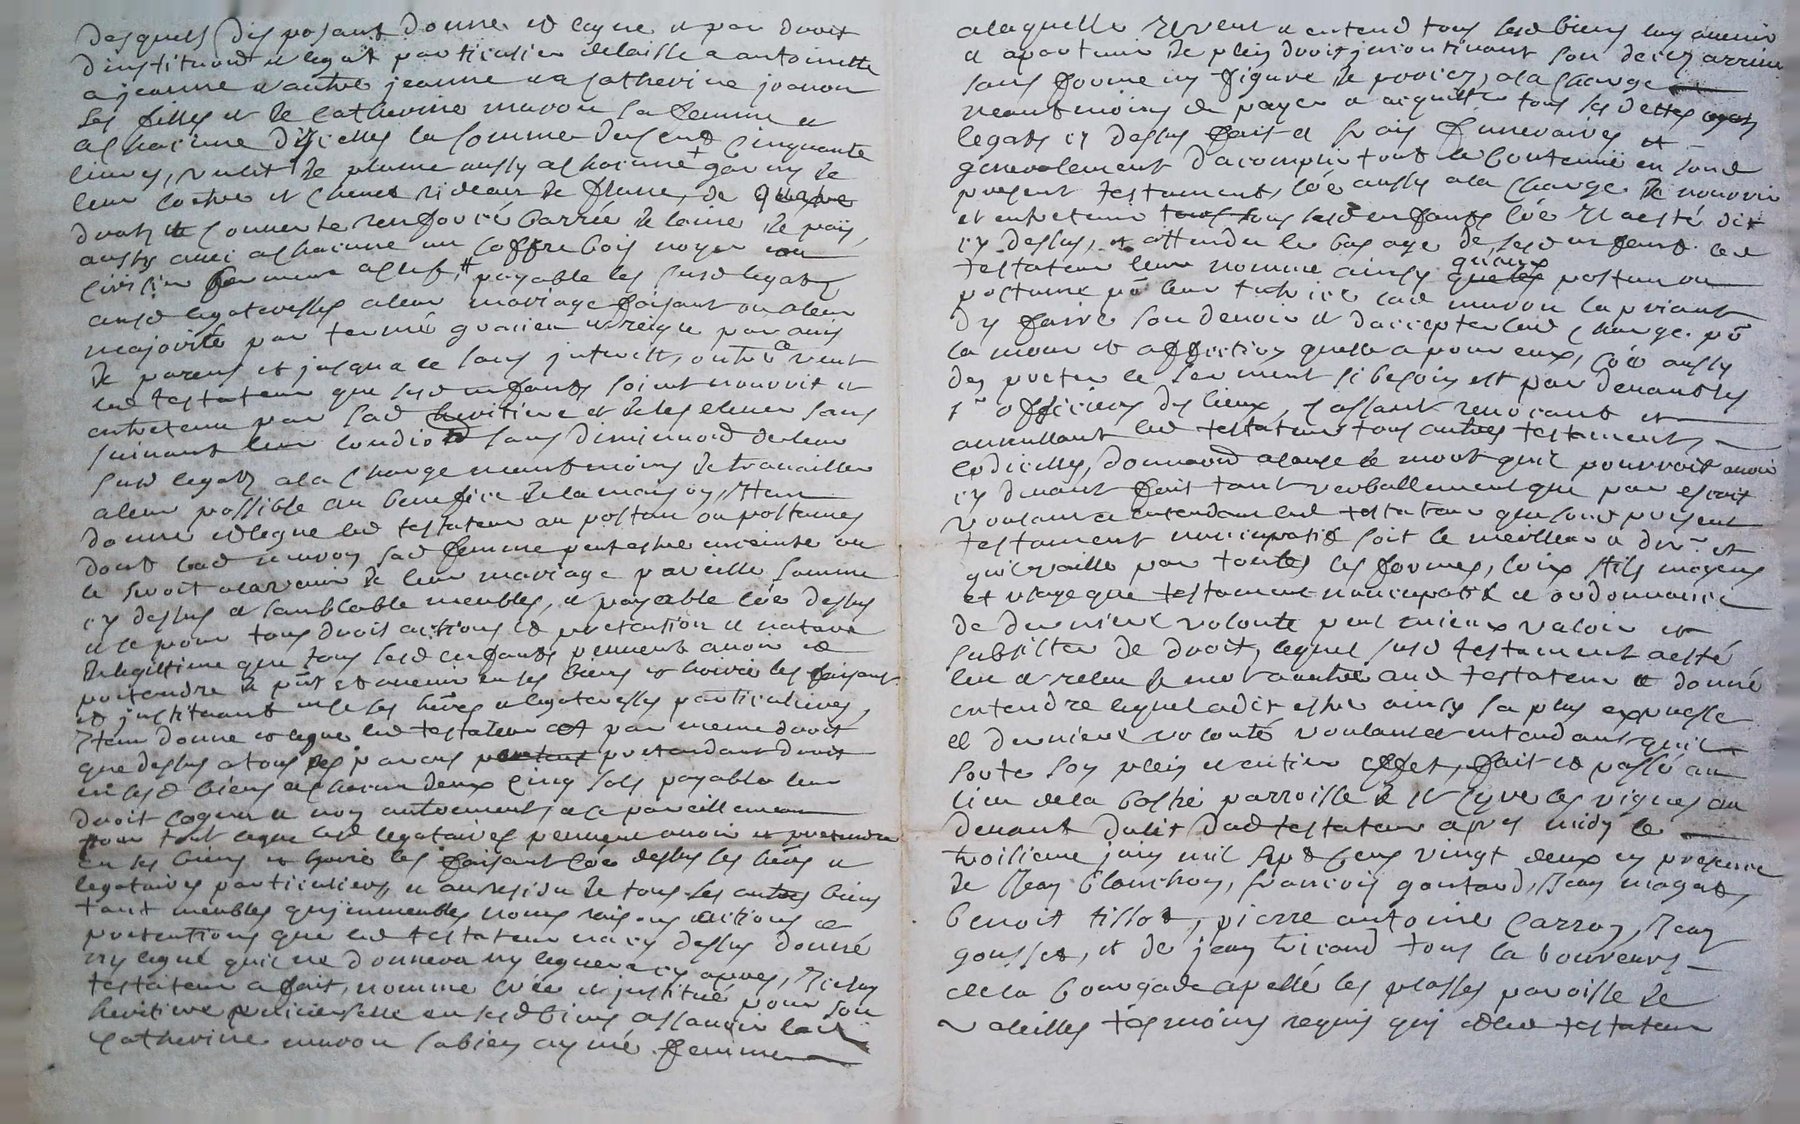 desquels disposant donne et legue et par droit
dinstitution et legat particulier delaisse a antoinette
a jeanne et autre jeanne et a catherine joanon
ses filles et de catherine mavon sa femme et
a chacune dicelles la somme de cent cinquante
livres, un lit de plume aussy a chacune garny de
leur coetre et chevet rideaux de
draps et couverte renforcé barrée de laine de païs,
aussy avec a chacune un coffre bois noyer
fermant a clef, payable les susd legatz
ausd legateresses a leur mariage faisant ou a leur
majorité par terme gracieux et reiglé par avis
de parens et jusqua ce sans interestz, outre ce veut
led testateur que sesd enfants soient nourrit et
entretenu par sad heritiere et de les elever sans
suivant leur condi͠on sans diminution de leur
susd legatz a la charge neantmoins de travailler
a leur possible au benefice de la maison, Item
donne et legue led testateur au postume ou postumes
dont lad mavon sad femme peut estre enceinte ou
le seroit a lavenir de leur mariage pareille somme
cy dessus et semblable meubles, et payable co͠e dessus
et ce pour tous droit actions et pretention et nature
de legitime que tous sesd enfants peuvent avoir et
pretendre de pñt et avenir en ses biens et hoirie les faisant
et instituant en ce ses hers et legateresses particulieres,
Item donne et legue led testateur et par meme droit
que dessus a tous ses parens pretendant droit
en sesd biens a chacun deux cinq sols payable leur
droit cognu et non autrement et ce pareillement
pour tout ce que lesd legataires peuvent avoir et pretendre
en ses biens et hoirie les faisant co͠e dessus ses hers et
legataires particuliers, et au residu de tous ses autres biens
tant meubles qu'immeubles noms raisons actions et
pretentions que led testateur na cy dessus donné
ny legué qu'il ne donnera ny leguera cy apres, Icelluy
testateur a fait, nommé créé et institué pour son
heritiere universelle en sesd biens assavoir lad
Catherine mavon sa bien aymé femme
a laquelle Il veut et entend tous sesd biens luy avenir
et apartenir de plein droit incontinant son decez arrivé
sans forme ny figure de procez, a la charge
neantmoins de payer et acquitter tous ses dettes
legatz cy dessus fait et frais funeraires et
generalement dacomplir tout le contenu en sond
present testament, co͠e aussy a la charge de nourrir
et entretenir tous sesd enfants co͠e Il a esté dit
cy dessus, et attendu le bas age de sesd enfants led
testateur leur nomme ainsy qu'aux postume ou
postume po͠ leur tutrice lad mavon la priant
dy faire son devoir et daccepter lad charge po͠
lamour et affection quelle a pour eux, co͠e aussy
den preter le serment si besoin est par devant les
srs officiers des lieux, cassant revocant et
annullant led testateur tous autres testaments
codicilles, donnation a cause de mort quil pourroit avoir
cy devant fait tant verballement que par escrit
voulant et entendant led testateur que sond present
testament nuncupatif soit le meilleur et dern. et
quil vaille par toutes les formes, loix stils moyens
et usage que testament nuncupatif et ordonnance
de derniere volonté peut mieux valoir et
subsister de droit, lequel susd testament a esté
leu et releu de mot a autre aud testateur et donné
entendre lequel a dit estre ainsy sa plus expresse
et derniere volonté voulant et entendant quil
sorte son plein et entier effet, fait et passé au
lieu de la parroisse de St Cyr les vignes au
devant du lit dud testateur apres midy le
troisieme juin mil sept cens vingt deux en presence
de Jean Blanchon, françois goutard, Jean magat,
benoit tissot, pierre antoine Carron, Jean
gousset, et de jean tricaud tous laboureurs
de la bourgade apellé les plasses paroisse de
valeilles tesmoins requis qui et led testateur